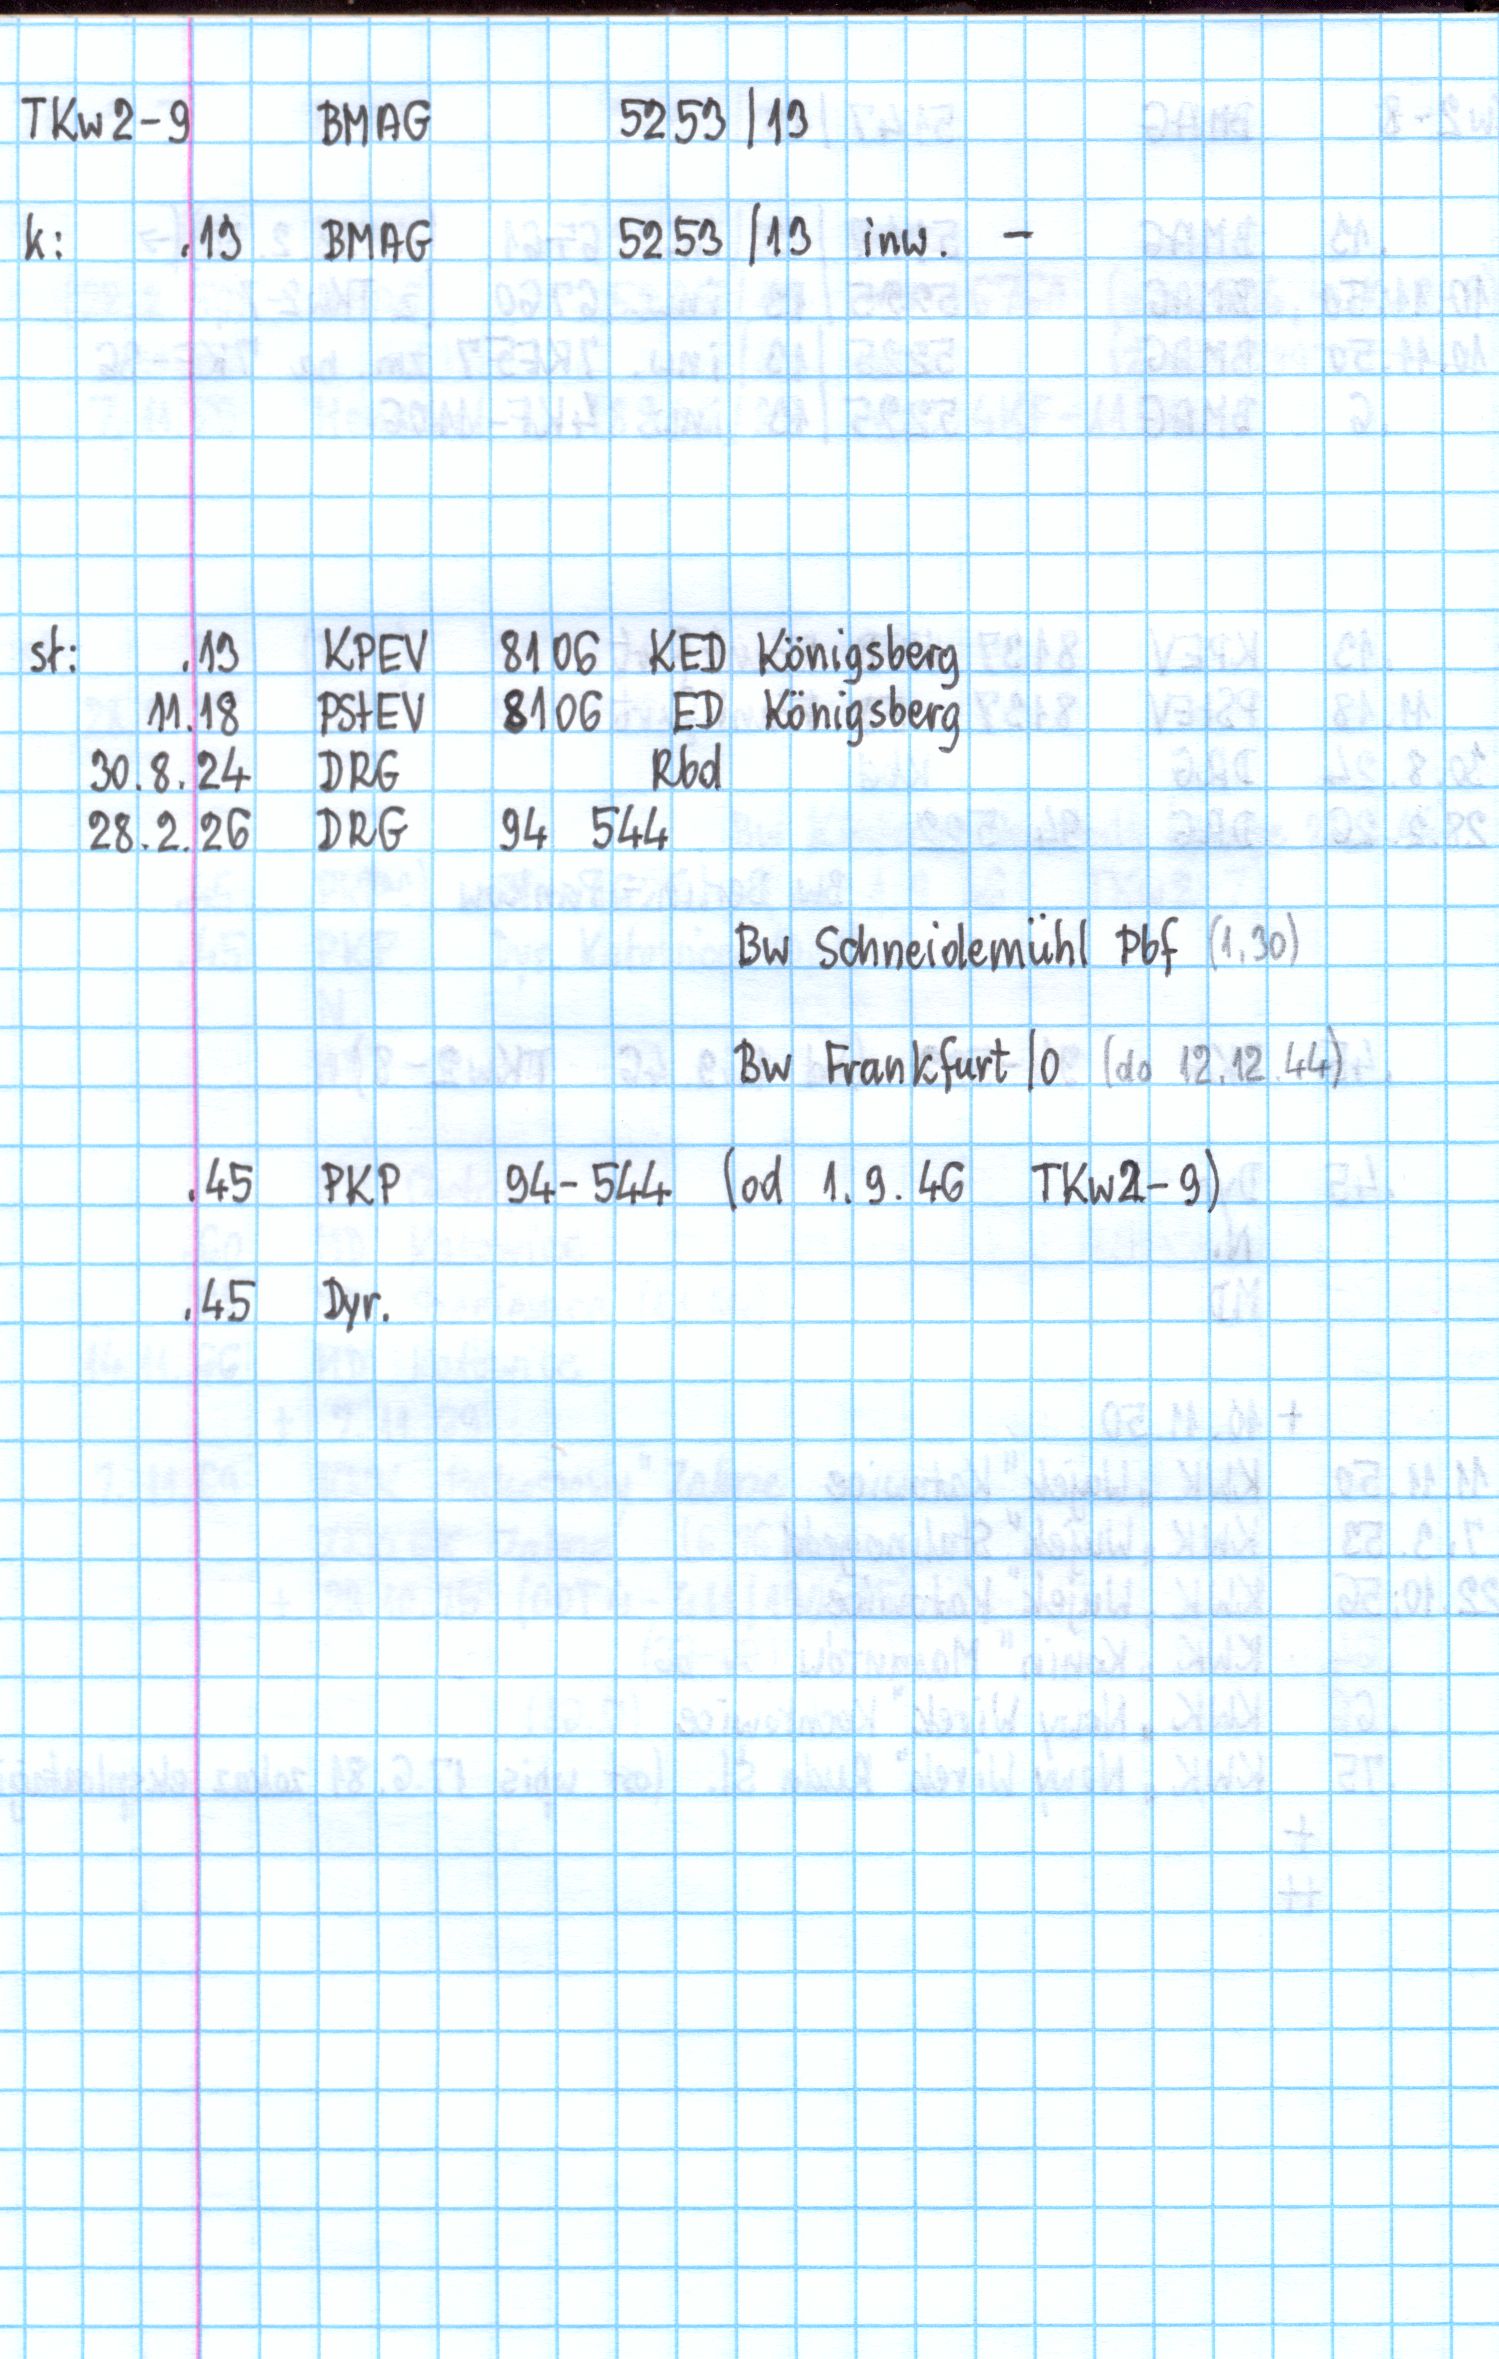 TKw2-9 BMAG 5253/13
k: .13 BMAG 5253/13 inw. -
st: .13 KPEV 8106 KED Königsberg
11.18 PStEV 8106 ED Königsberg
30.8.24 DRG Rbd
28.2.26 DRG 94 544
Bw Schneidemühl Pbf (1.30)
Bw Frankfurt/O (do 12.12.44)
.45 PKP 94-544 (od 1.9.46 TKw2-9)
.45 Dyr.